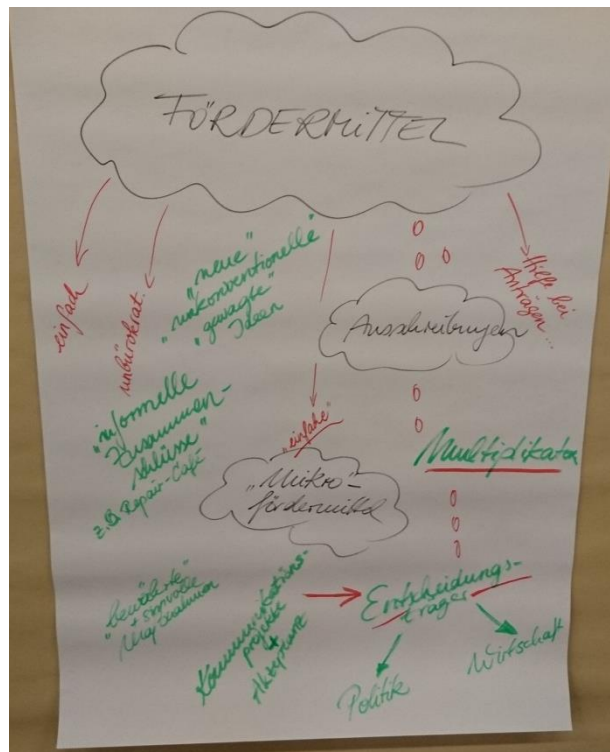 FÖRDERMITTEL
einfach
unbürokrat.
"neue"
"unkonventionelle"
"gewagte"
Ideen
Hilfe bei
Anträgen...
Ausschreibungen
"informelle
Zusammen-
schlüsse"
z.B. Repair-Café
"einfache"
"Mikro"-
fördermittel
Multiplikator
"bewährte"
+ sinnvolle
Kommunikations-
projekte
+
Akzeptanz
Entscheidungs-
träger
Politik
Wirtschaft